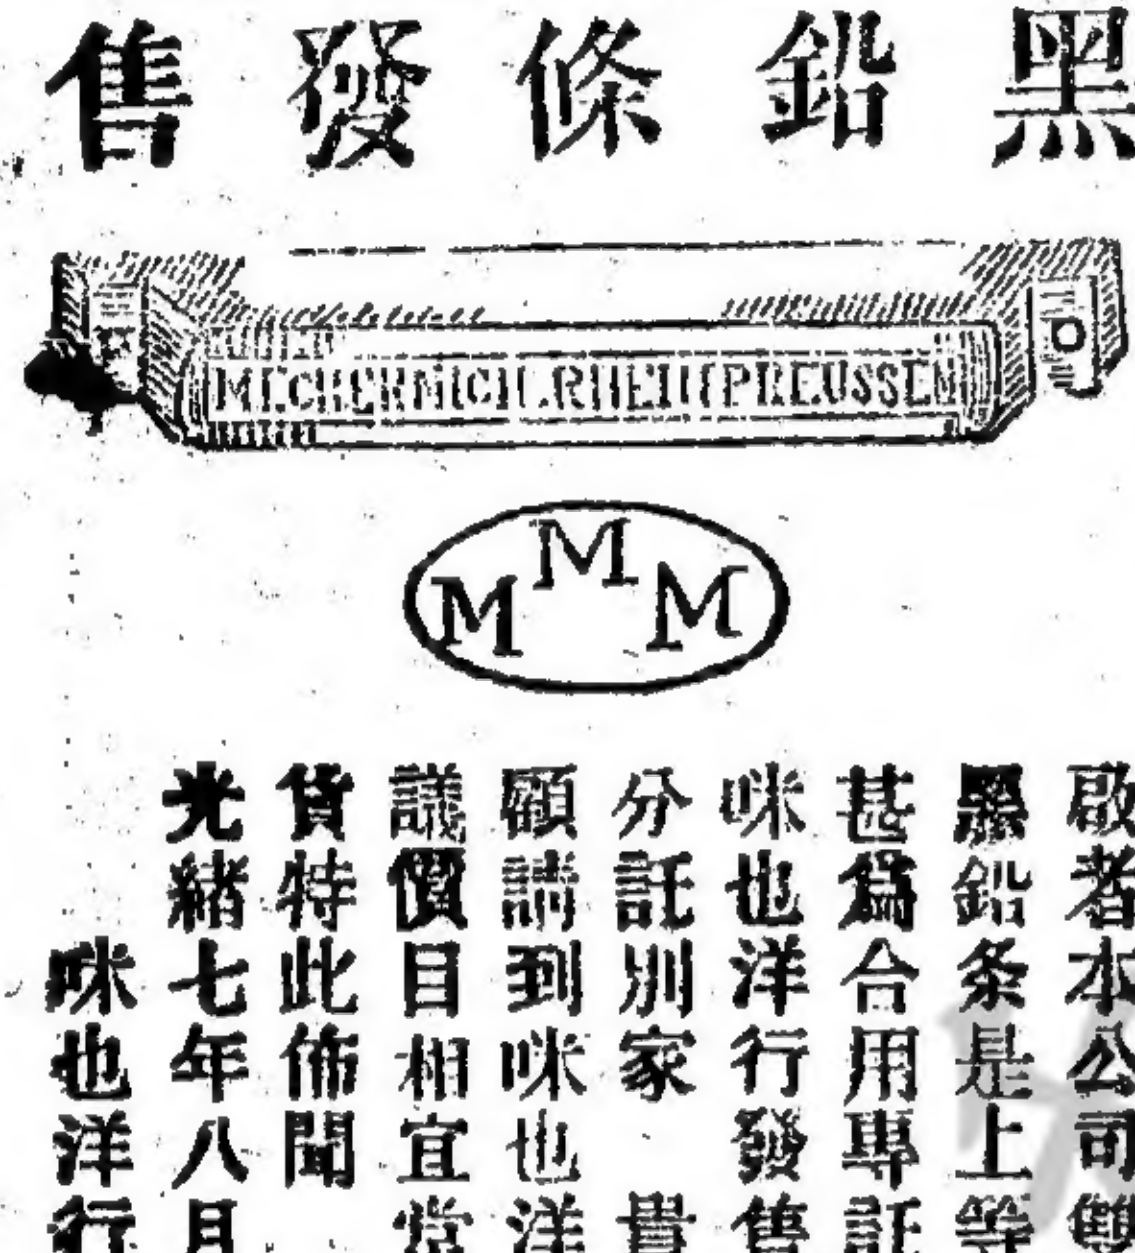 黑鉛條發售
MECHERNICH.RHEINPREUSSEN
M M M
啟者本公司
黑鉛条是上等
甚爲合用專託
咪也洋行發售
分託別家　貴
顧請到咪也洋
議價目相宜常
貨特此佈聞
光緒七年八月
咪也洋行